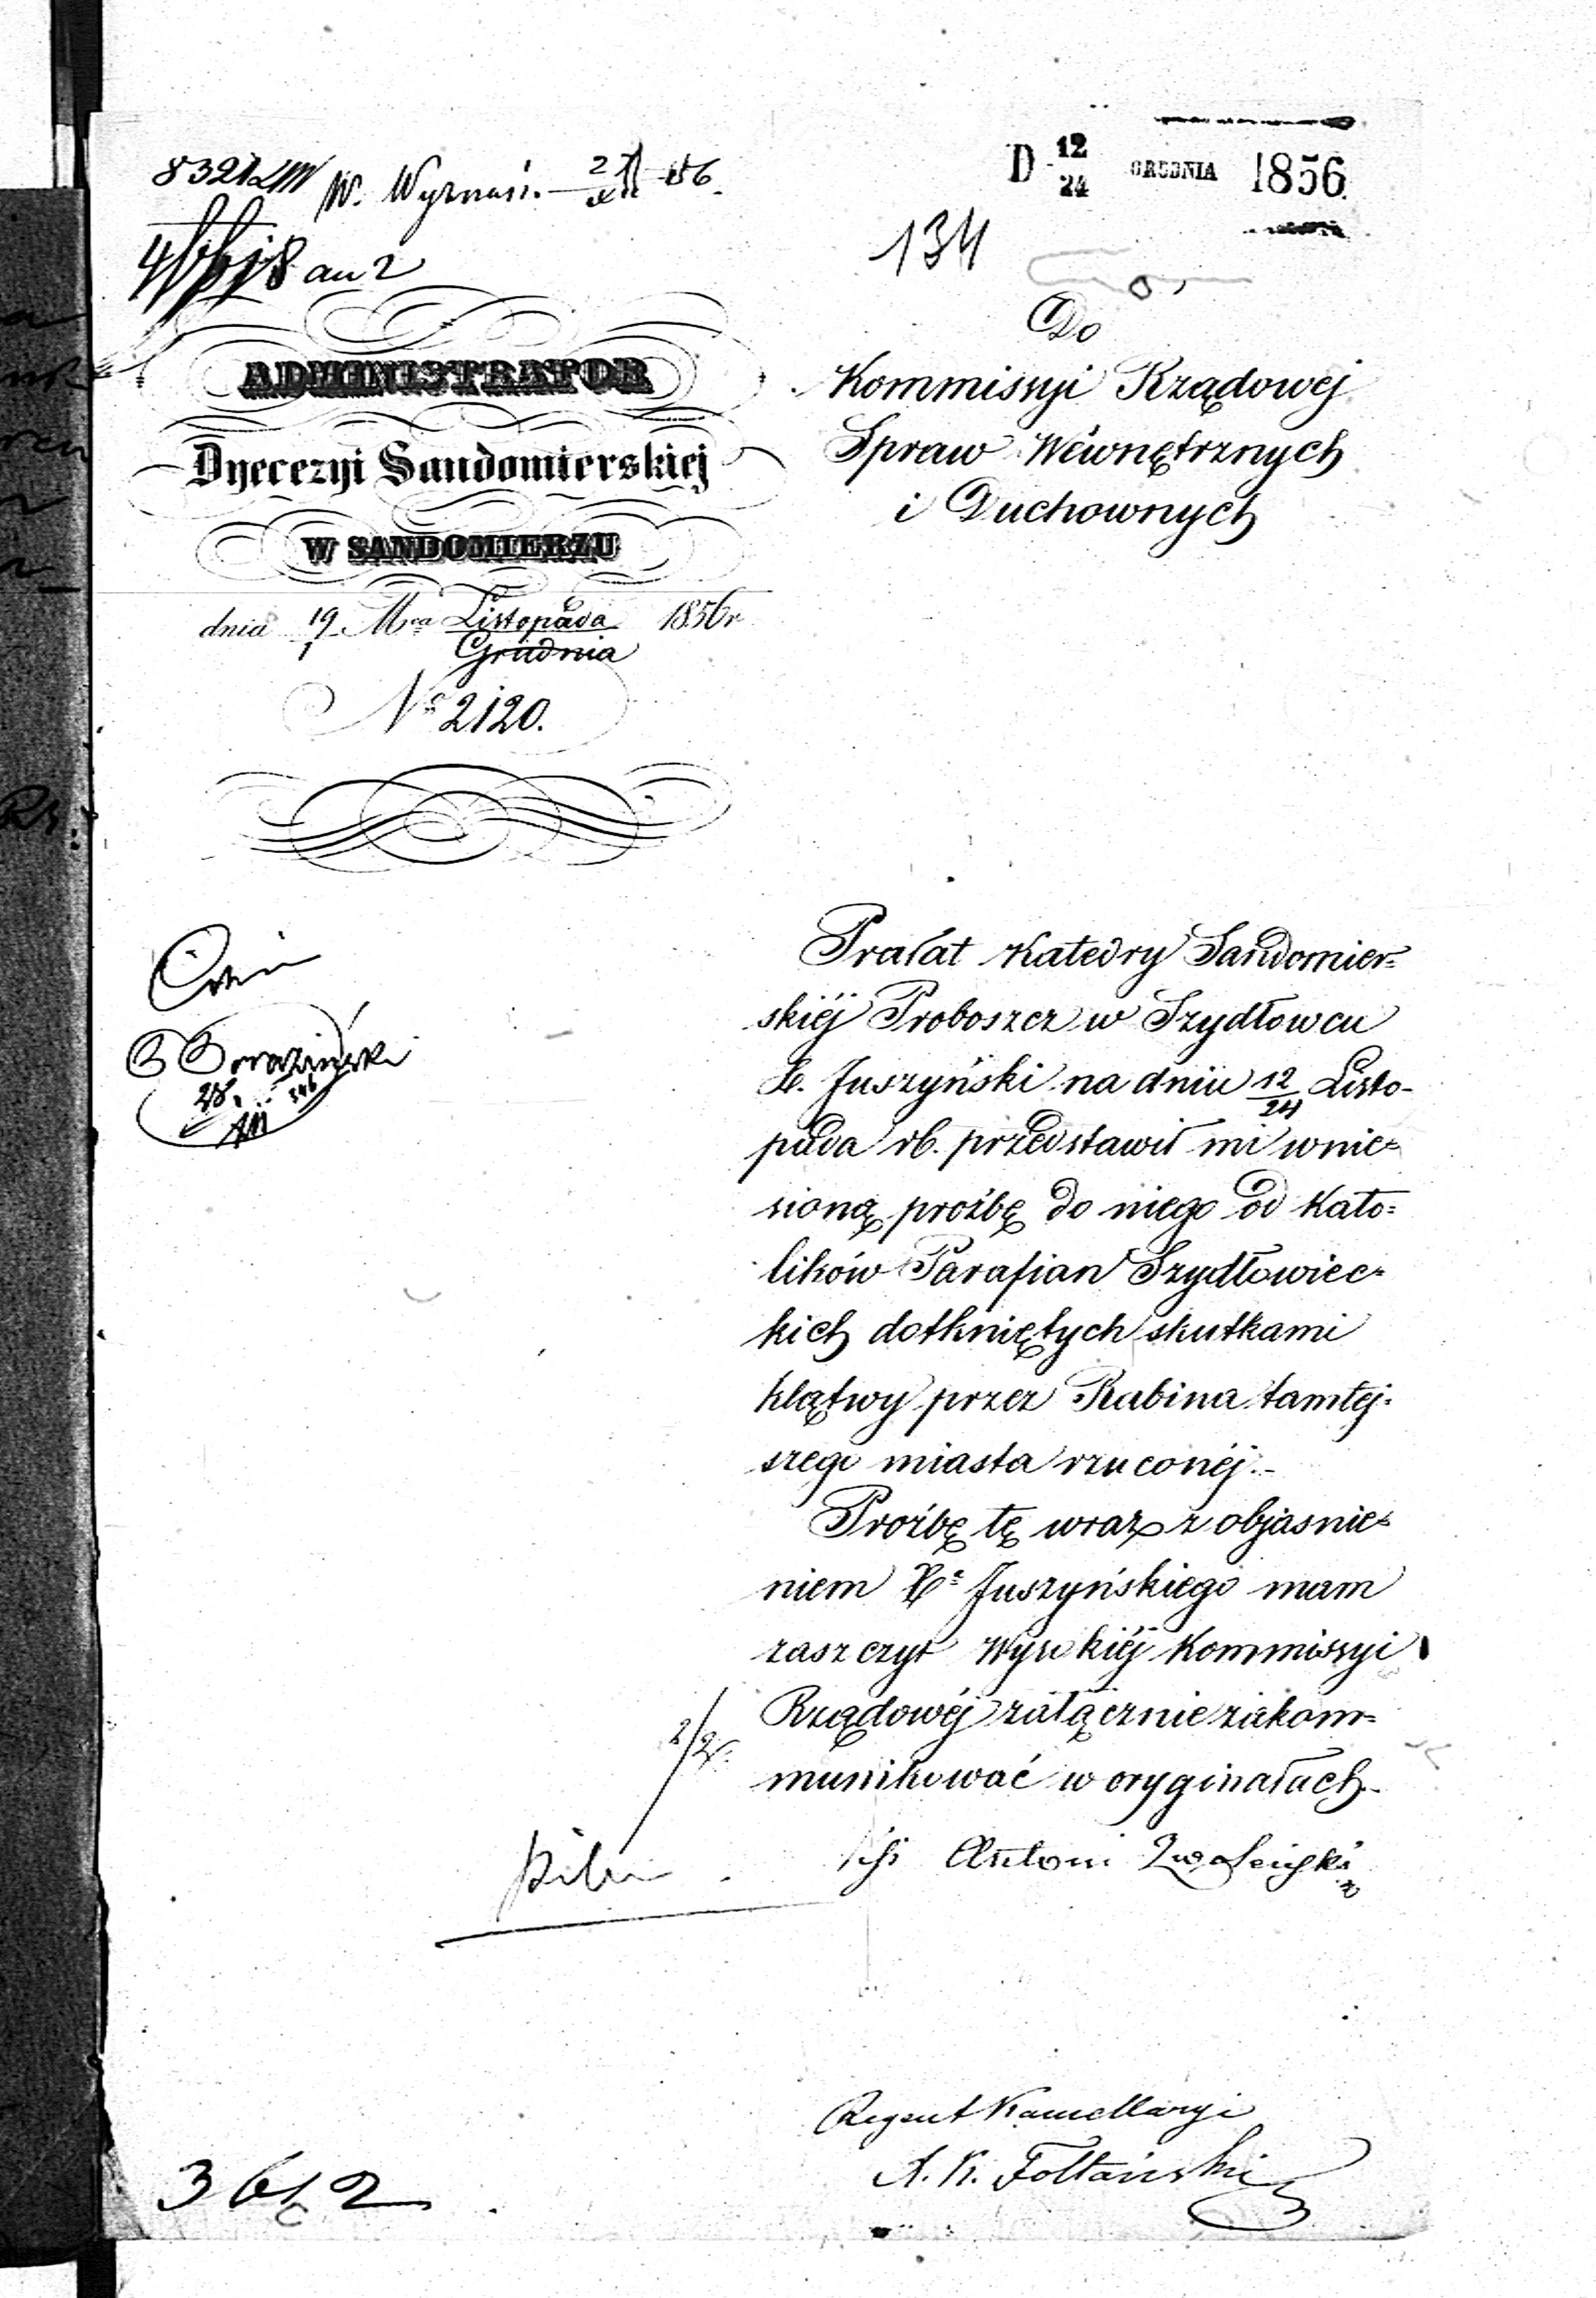 W. Wyznań.
D 12/24 GRUDNIA 1856.
134
ADMINISTRATOR
Dyecezyi Sandomierskiej
W SANDOMIERZU
dnia 19/1 Mca Listopada 1856 r
Grudnia
No 2120.
Do
Kommissyi Rządowej
Spraw Wewnętrznych
i Duchownych
Prałat Katedry Sandomier=
skiéj Proboszcz w Szydłowcu
X. Juszyński na dniu 12/24 Listo-
pada rb. przedstawił mi wnie=
sioną proźbę do niego od Kato=
lików Parafian Szydłowiec=
kich dotkniętych skutkami
klątwy przez Rabina tamtej=
szego miasta rzuconéj.-
Proźbę tę wraz z objasnie=
niem Xa Juszyńskiego mam
zaszczyt Wysokiéj Kommissyi
Rządowéj załącznie zakom=
munikować w oryginałach.-
Antoni Zwoleński
Regent Kancellaryi
A. K. Foltański